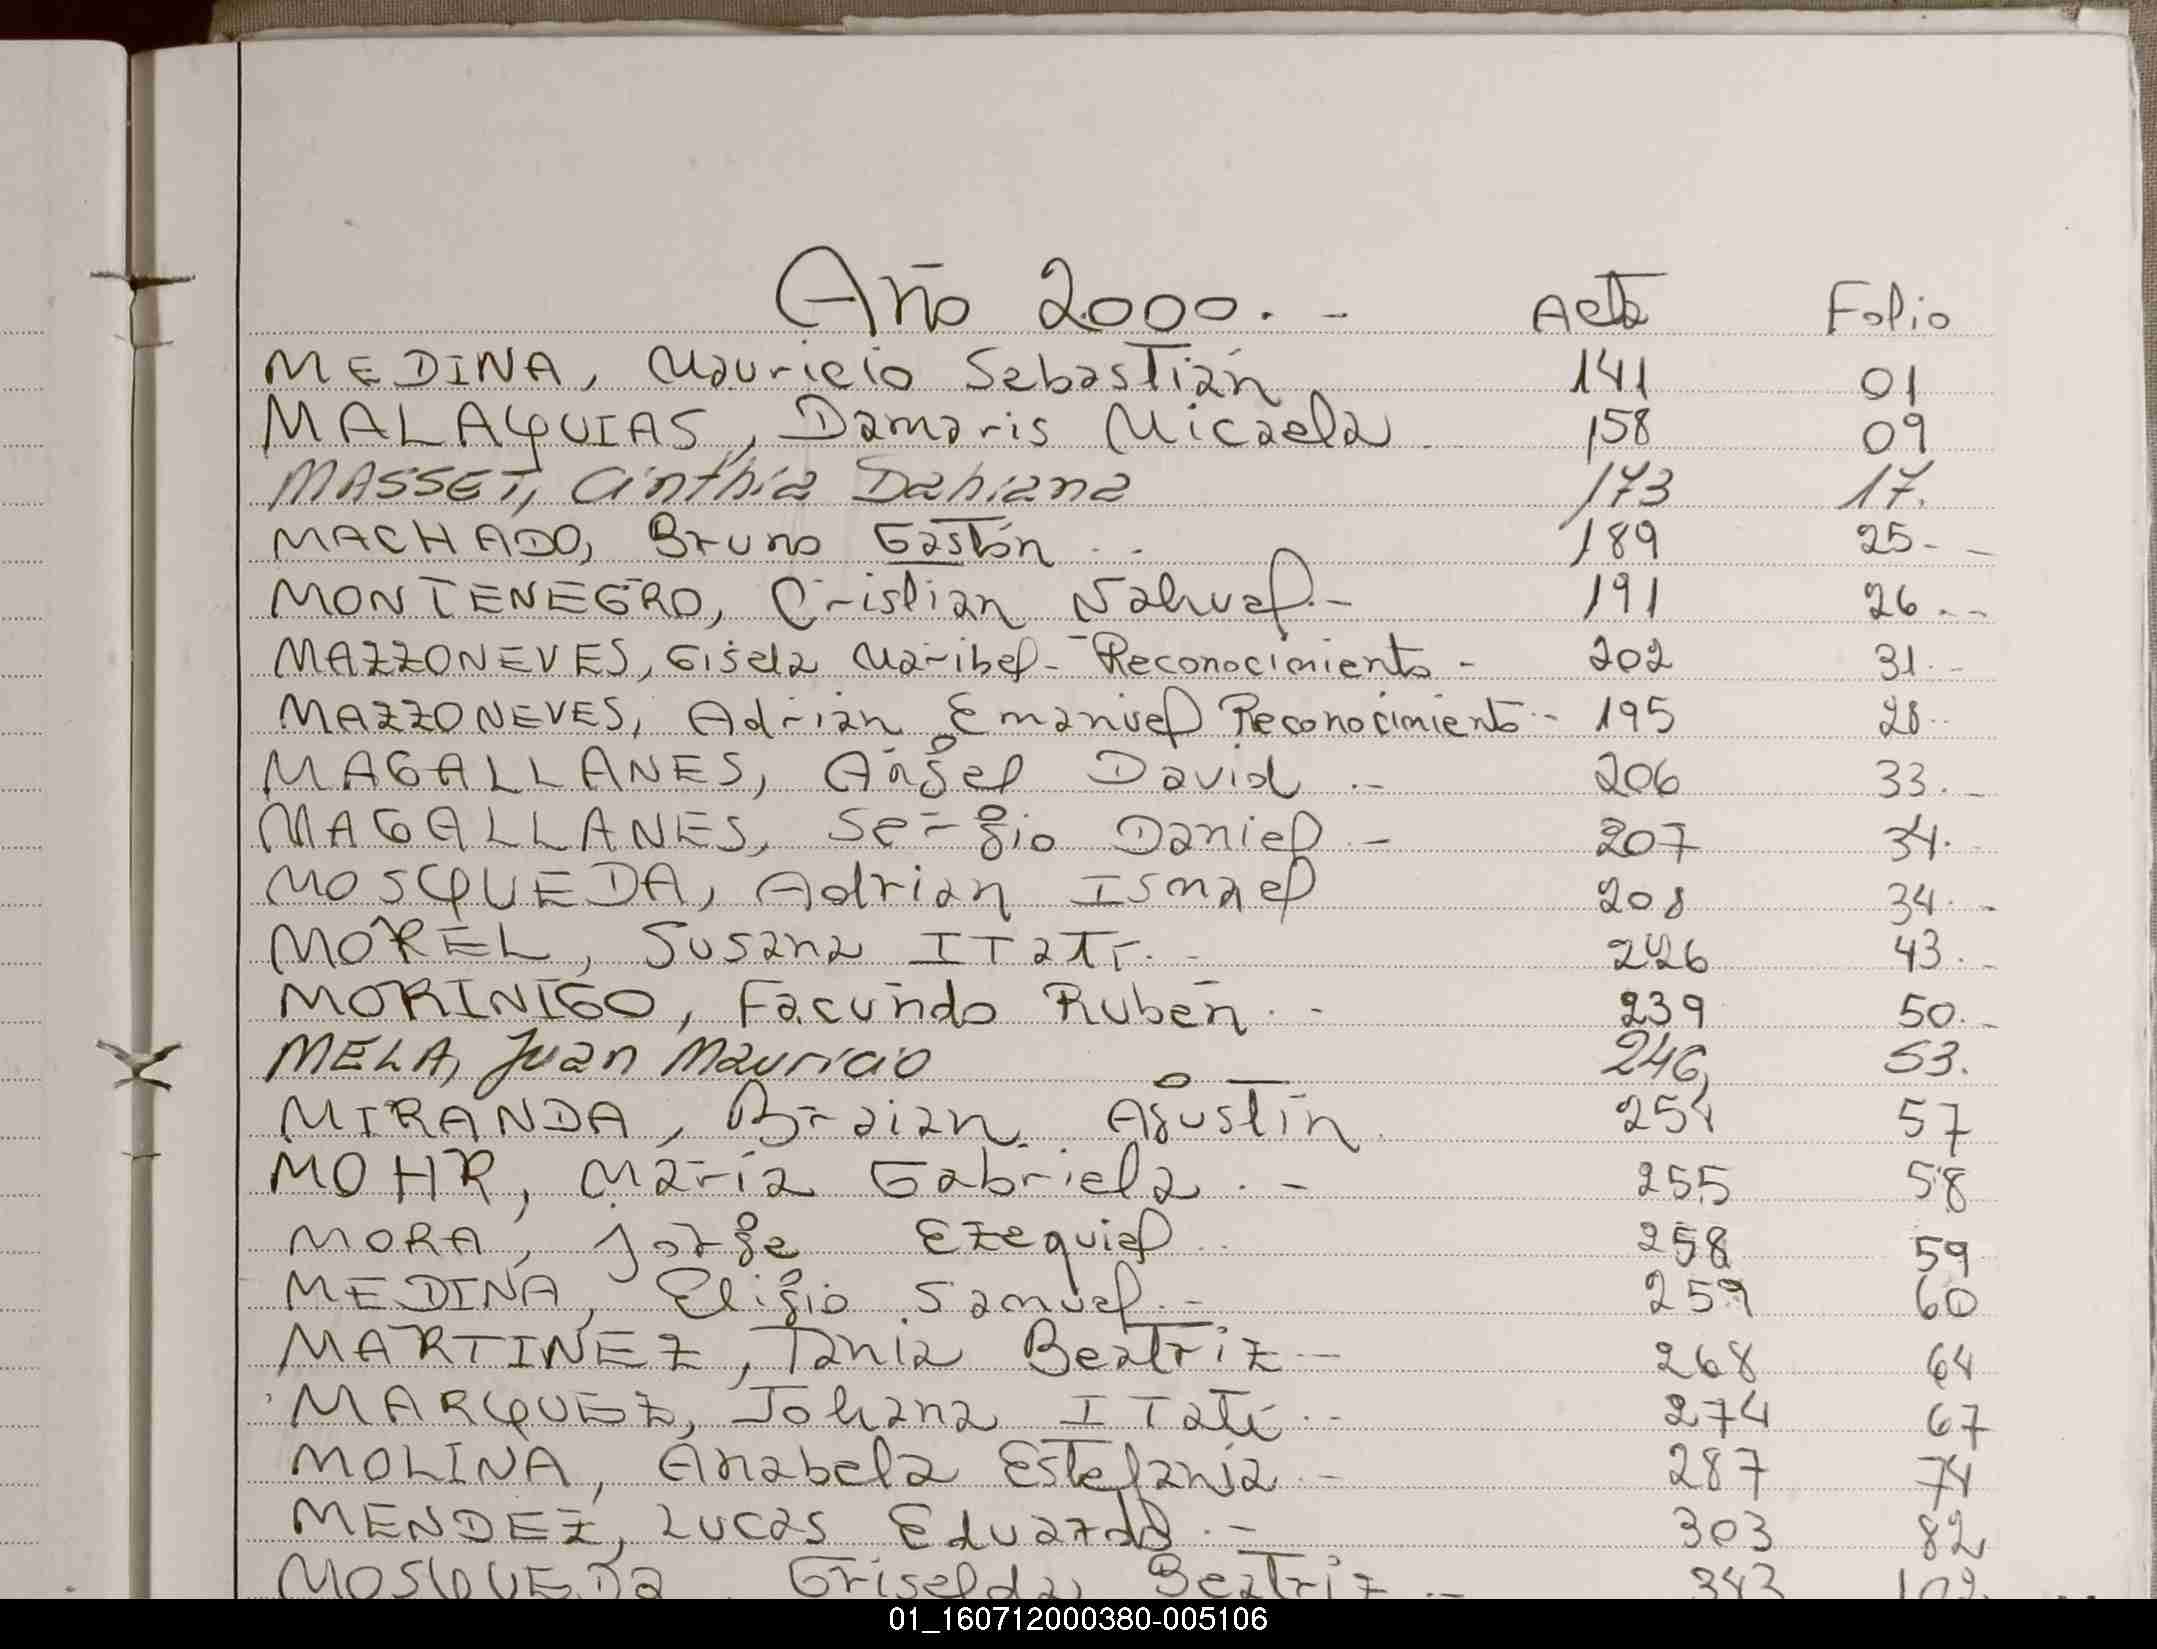 Año 2000. - Acta Folio
MEDINA, Mauricio Sebastián 141 01
MALAQUIAS, Damaris Micaela 158 09
MASSET, Cinthia Dahiana 173 17.
MACHADO, Bruno Gastón .. 189 25. -
MONTENEGRO, Cristian Nahuel.- 191 26. -
MAZZONEVES, Gisela Maribel - Reconocimiento - 202 31. -
MAZZONEVES, Adrián Emanuel Reconocimiento - 195 28..
MAGALLANES, Angel David .- 206 33. -
MAGALLANES, Sergio Daniel .- 207 34.
MOSQUEDA, Adrian Ismael 208 34. -
MOREL, Susana ITatí. - 226 43. -
MORINIGO, Facundo Rubén. - 239 50. -
MELA, Juan Mauricio 246, 53.
MIRANDA, Braian Agustín. 254 57
MOHR, María Gabriela. - 255 58
MORA, Jorge Ezequiel .. 258 59
MEDINA, Eligio Samuel. - 259 60
MARTINEZ, Tania Beatriz - 268 64
MARQUEZ, Johana ITatí .- 274 67
MOLINA, Anabela Estefanía. - 287 74
MENDEZ, Lucas Eduardo .- 303 82
MOSQUEDa Griselda Beatriz .- 343 102
01_160712000380-005106